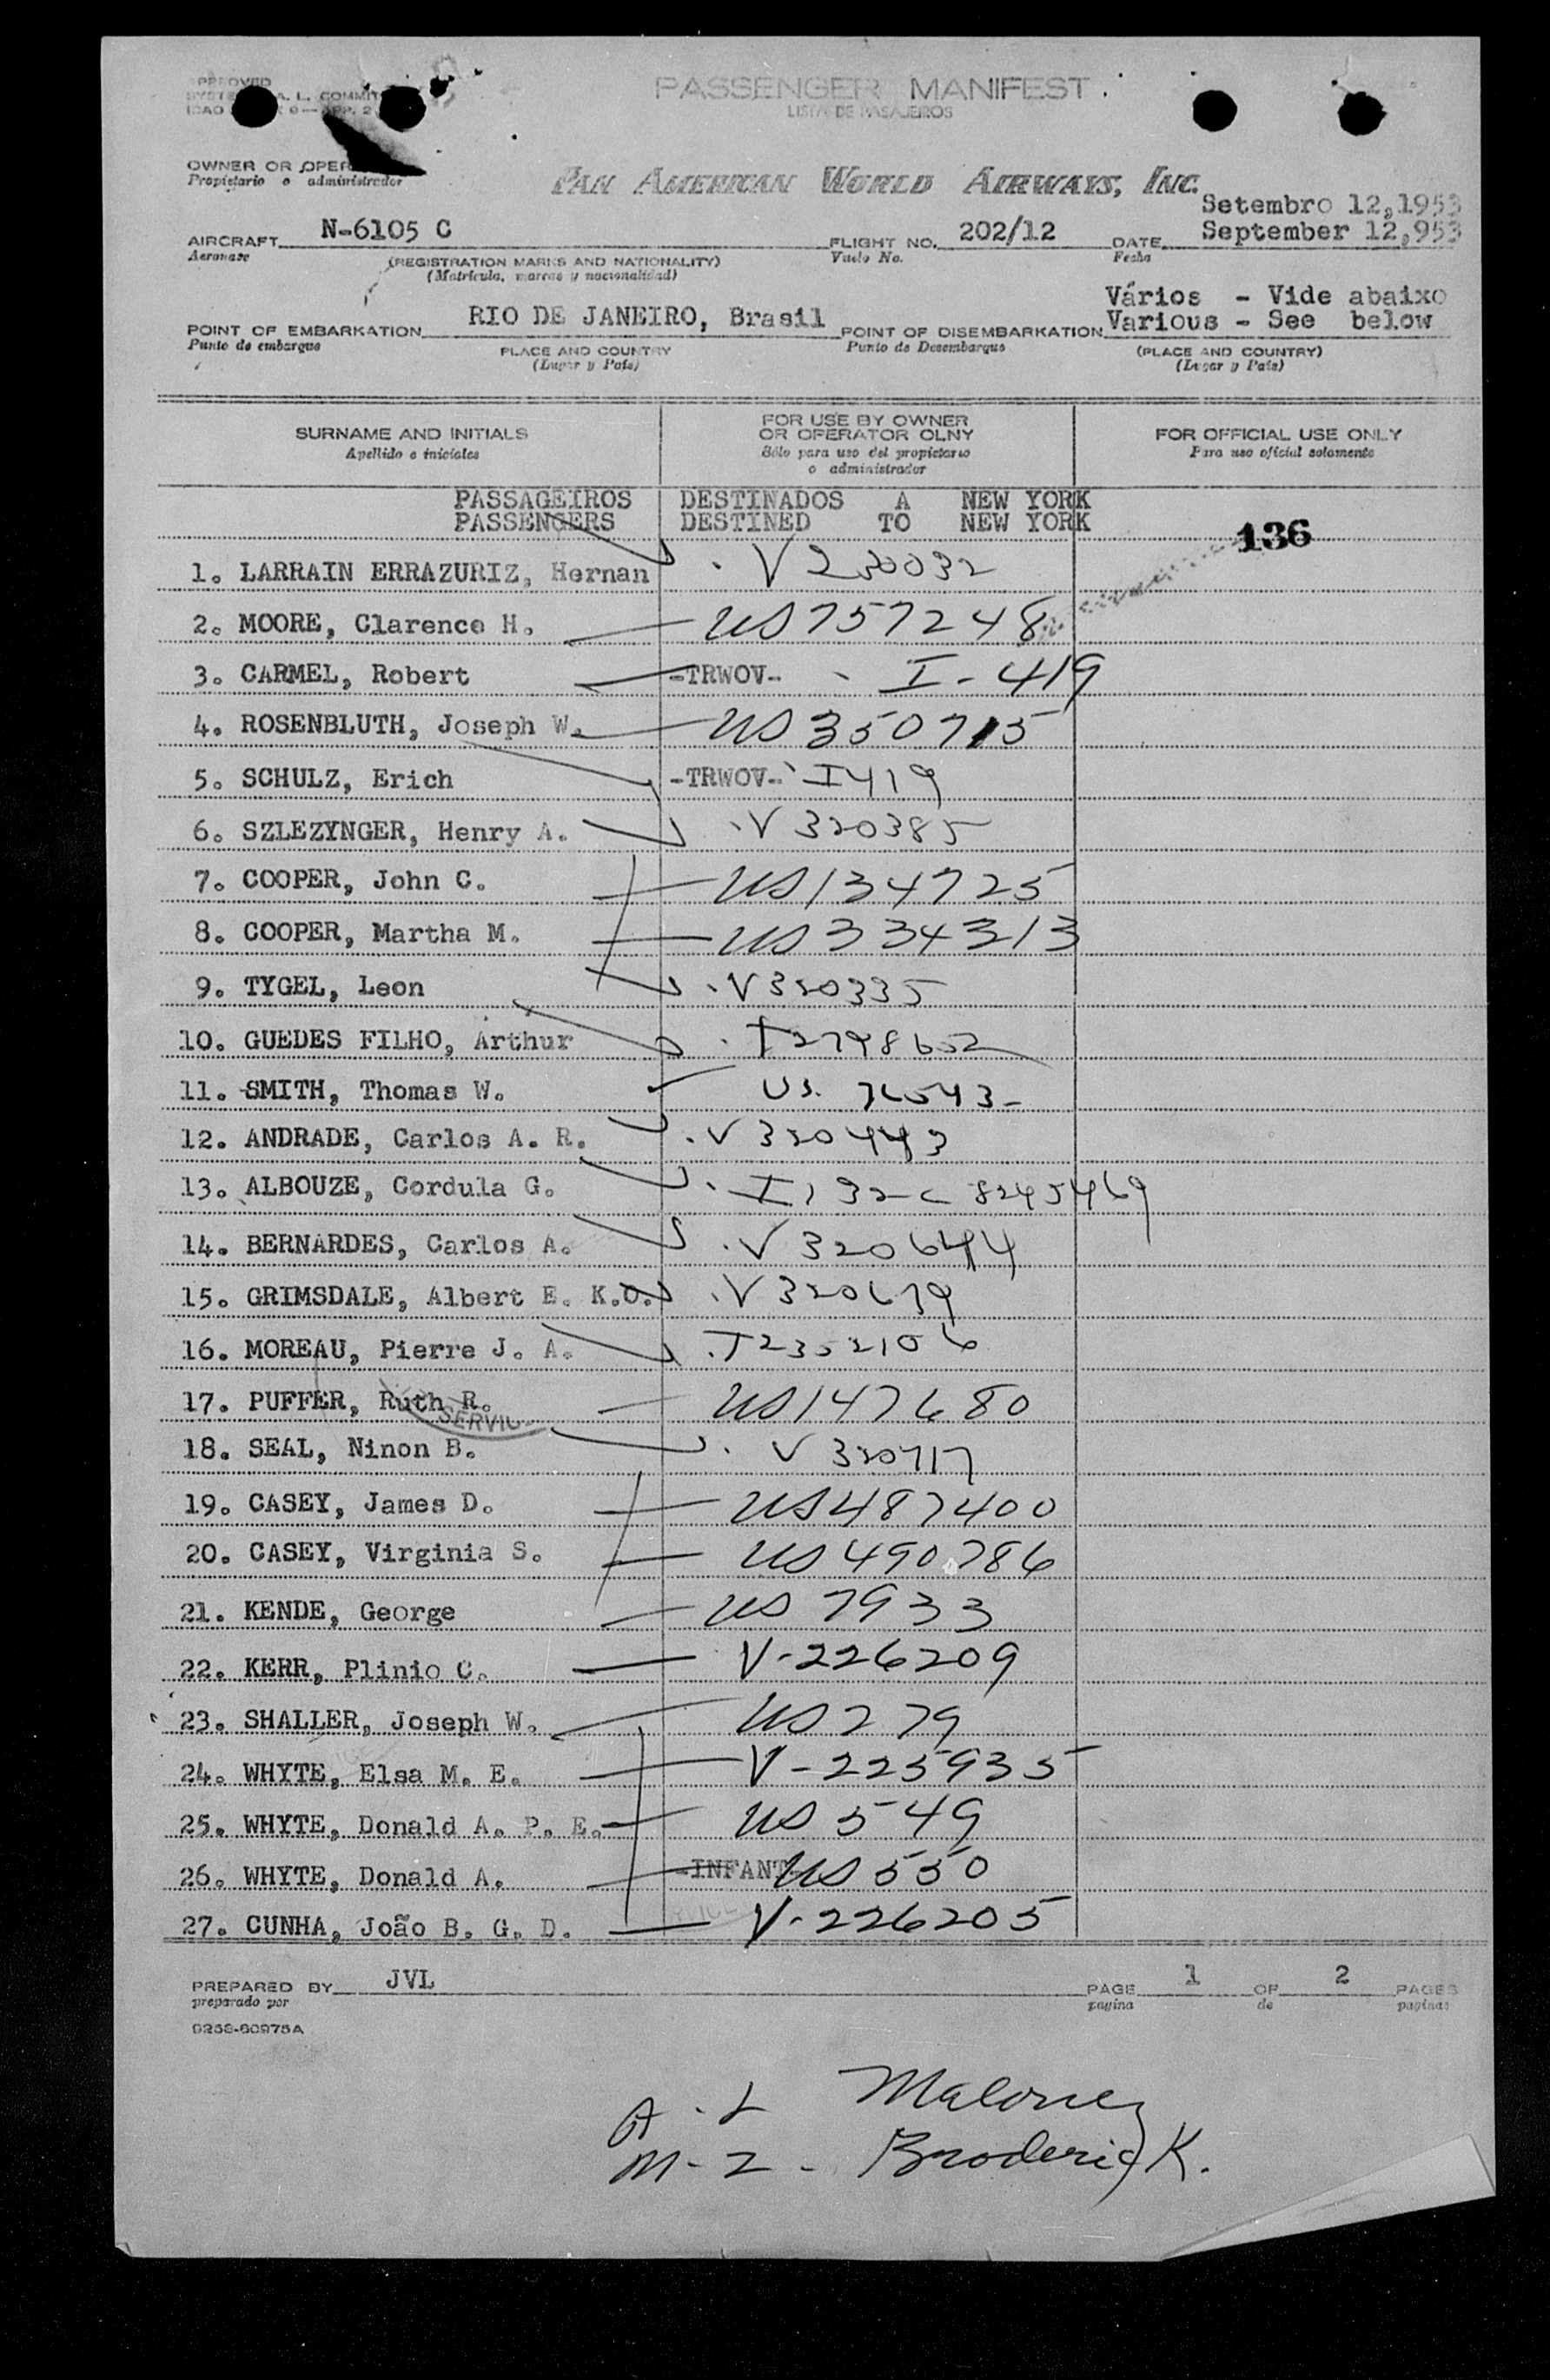 APPROVED
A. L. COMMIT
ICAO 9 — APP. 2
PASSENGER MANIFEST
LISTA DE PASAJEROS
OWNER OR OPER
Propietario o administrador
PAN AMERICAN WORLD AIRWAYS, INC.
Setembro 12,1953
AIRCRAFT N-6105 C FLIGHT NO. 202/12 DATE September 12,953
Aeronave Vuelo No. Fecha
(REGISTRATION MARKS AND NATIONALITY)
(Matrícula, marcas y nacionalidad)
Vários - Vide abaixo
POINT OF EMBARKATION RIO DE JANEIRO, Brasil POINT OF DISEMBARKATION Various - See below
Punto de embarque Punto de Desembarque
PLACE AND COUNTRY (PLACE AND COUNTRY)
(Lugar y País) (Lugar y País)
SURNAME AND INITIALS
Apellido e iniciales
FOR USE BY OWNER
OR OPERATOR OLNY
Sólo para uso del propietario
o administrador
FOR OFFICIAL USE ONLY
Para uso oficial solamente
PASSAGEIROS DESTINADOS A NEW YORK
PASSENGERS DESTINED TO NEW YORK
136
1. LARRAIN ERRAZURIZ, Hernan V 230032
2. MOORE, Clarence H. US 757248
3. CARMEL, Robert -TRWOV- I-419
4. ROSENBLUTH, Joseph W. US 350715
5. SCHULZ, Erich -TRWOV- I419
6. SZLEZYNGER, Henry A. V 320385
7. COOPER, John C. US 134725
8. COOPER, Martha M. US 334313
9. TYGEL, Leon V320335
10. GUEDES FILHO, Arthur I2798652
11. SMITH, Thomas W. US. 76543-
12. ANDRADE, Carlos A. R. V 320443
13. ALBOUZE, Cordula G. I 132-C 8245469
14. BERNARDES, Carlos A. V 320644
15. GRIMSDALE, Albert E. K.O. V 320679
16. MOREAU, Pierre J. A. I2352106
17. PUFFER, Ruth R. US 147680
SERVIC
18. SEAL, Ninon B. V 320717
19. CASEY, James D. US 487400
20. CASEY, Virginia S. US 490786
21. KENDE, George US 7933
22. KERR, Plinio C. V-226209
23. SHALLER, Joseph W. US 279
24. WHYTE, Elsa M. E. V-225935
25. WHYTE, Donald A. P. E. US 549
26. WHYTE, Donald A. -INFANT- US 550
27. CUNHA, João B. G. D. V-226205
PREPARED BY JVL PAGE 1 OF 2 PAGES
preparado por pagina de paginas
9258-60975A
A - L Maloney
M - Z - Broderick.